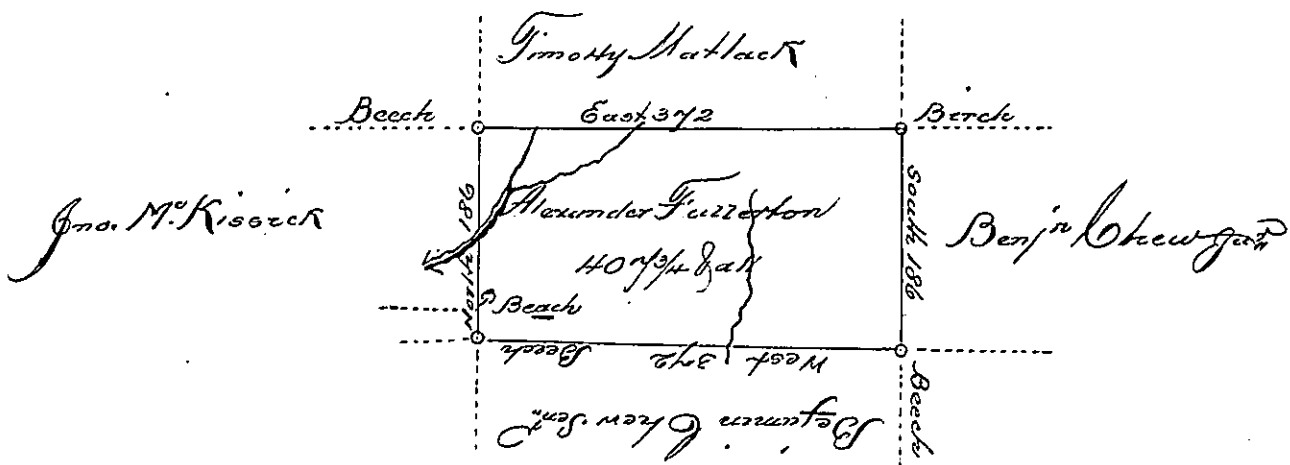 Timothy Matlack
Beech
East 372
Birch
Jno. McKissick
North 186
Alexander Fullerton
407 3/4 & all
South 186
Benjn Chew Junr
P Beach
Beech
West 372
Beech
Bejamin Chew Senr